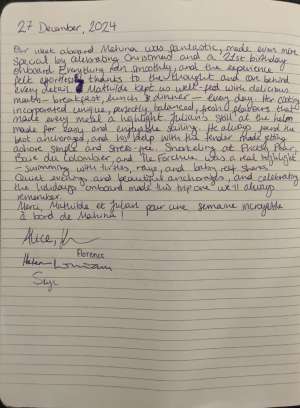 27 December, 2024
Our week aboard Mahina was fantastic, made even more
special by celebrating Christmas and a 21st birthday
onboard. Everything ran smoothly, and the experience
felt effortless thanks to the thought and care behind
every detail. Mathilde kept us well-fed with delicious
meals - breakfast, lunch & dinner - every day. Her cooking
incorporated unique, perfectly balanced, fresh flavours that
made every meal a highlight. Julian's skill at the helm
made for easy and enjoyable sailing. He always found the
best anchorages, and his help with the tender made getting
ashore simple and stress-free. Snorkelling at
Baie du Colombier, and Île Fourchue was a real highlight
- swimming with turtles, rays, and baby reef sharks!
Quiet evenings and beautiful anchorages, and celebrating
the holidays onboard made this trip one we'll always
remember.
Merci, Mathilde et Julian pour une semaine incroyable
à bord de Mahina!
Alice,
Florence
Helen